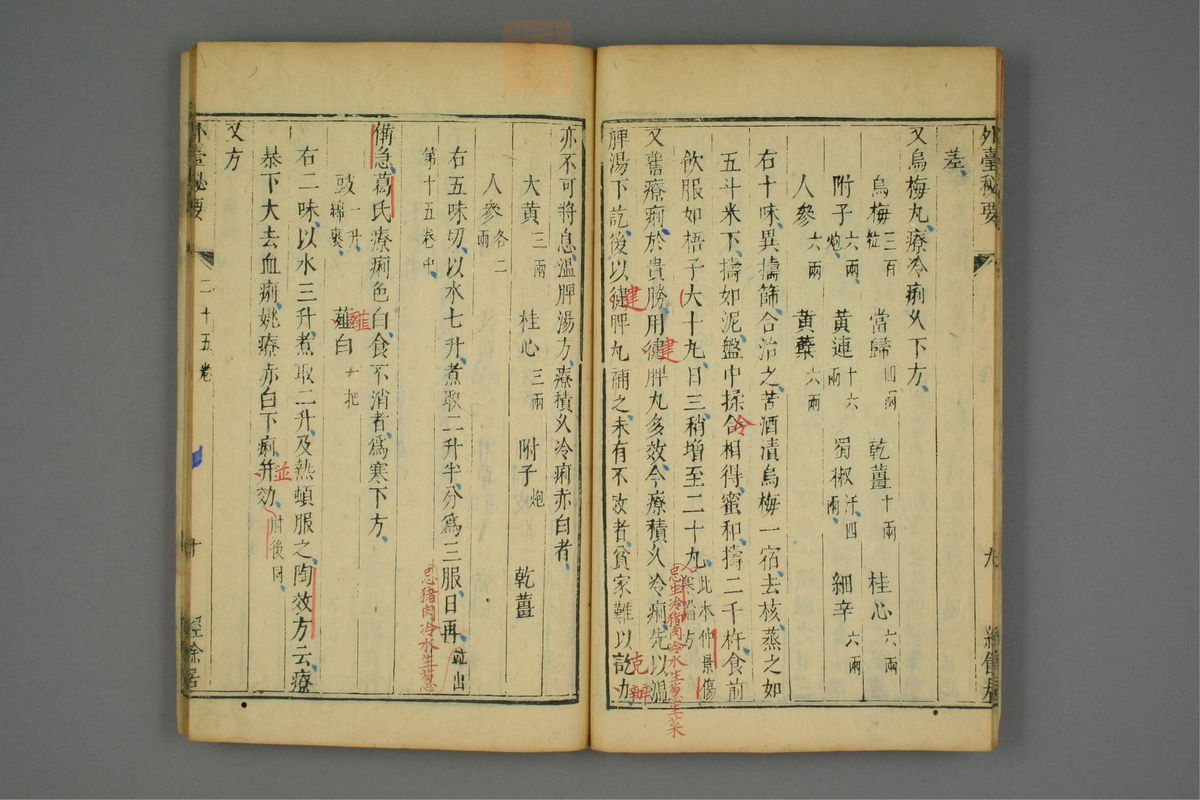 外臺秘要
九
差
又烏梅丸療冷痢久下方
烏梅三百粒 當歸四兩 乾薑十兩 桂心六兩
附子六兩炮 黃連十六兩 蜀椒汗四兩 細辛六兩
人參六兩 黃蘗六兩
右十味異擣篩合治之苦酒漬烏梅一宿去核蒸之如
五斗米下擣如泥盤中揉合相得蜜和擣二千杵食前
冷
飲服如梧子大十丸日三稍增至二十丸此本仲景傷寒論方
忌生冷猪肉冷水生葱生菜
又舊療痢於貴勝用健脾丸多效今療積久冷痢先以溫
建
脾湯下訖後以健脾丸補之未有不效者貧家難以訖力
建
克辦
亦不可將息溫脾湯方療積久冷痢赤白者
大黃三兩 桂心三兩 附子炮 乾薑
人參各二兩
右五味切以水七升煮取二升半分爲三服日再並出
第十五卷中
忌猪肉冷水生葱
備急葛氏療痢色白食不消者爲寒下方
豉一升綿裹 薤白一把
薤
右二味以水三升煮取二升及熱頓服之陶效方云療
暴下大去血痢姚療赤白下痢并効肘後同
並
又方
外臺秘要
二十五卷
十
經餘居